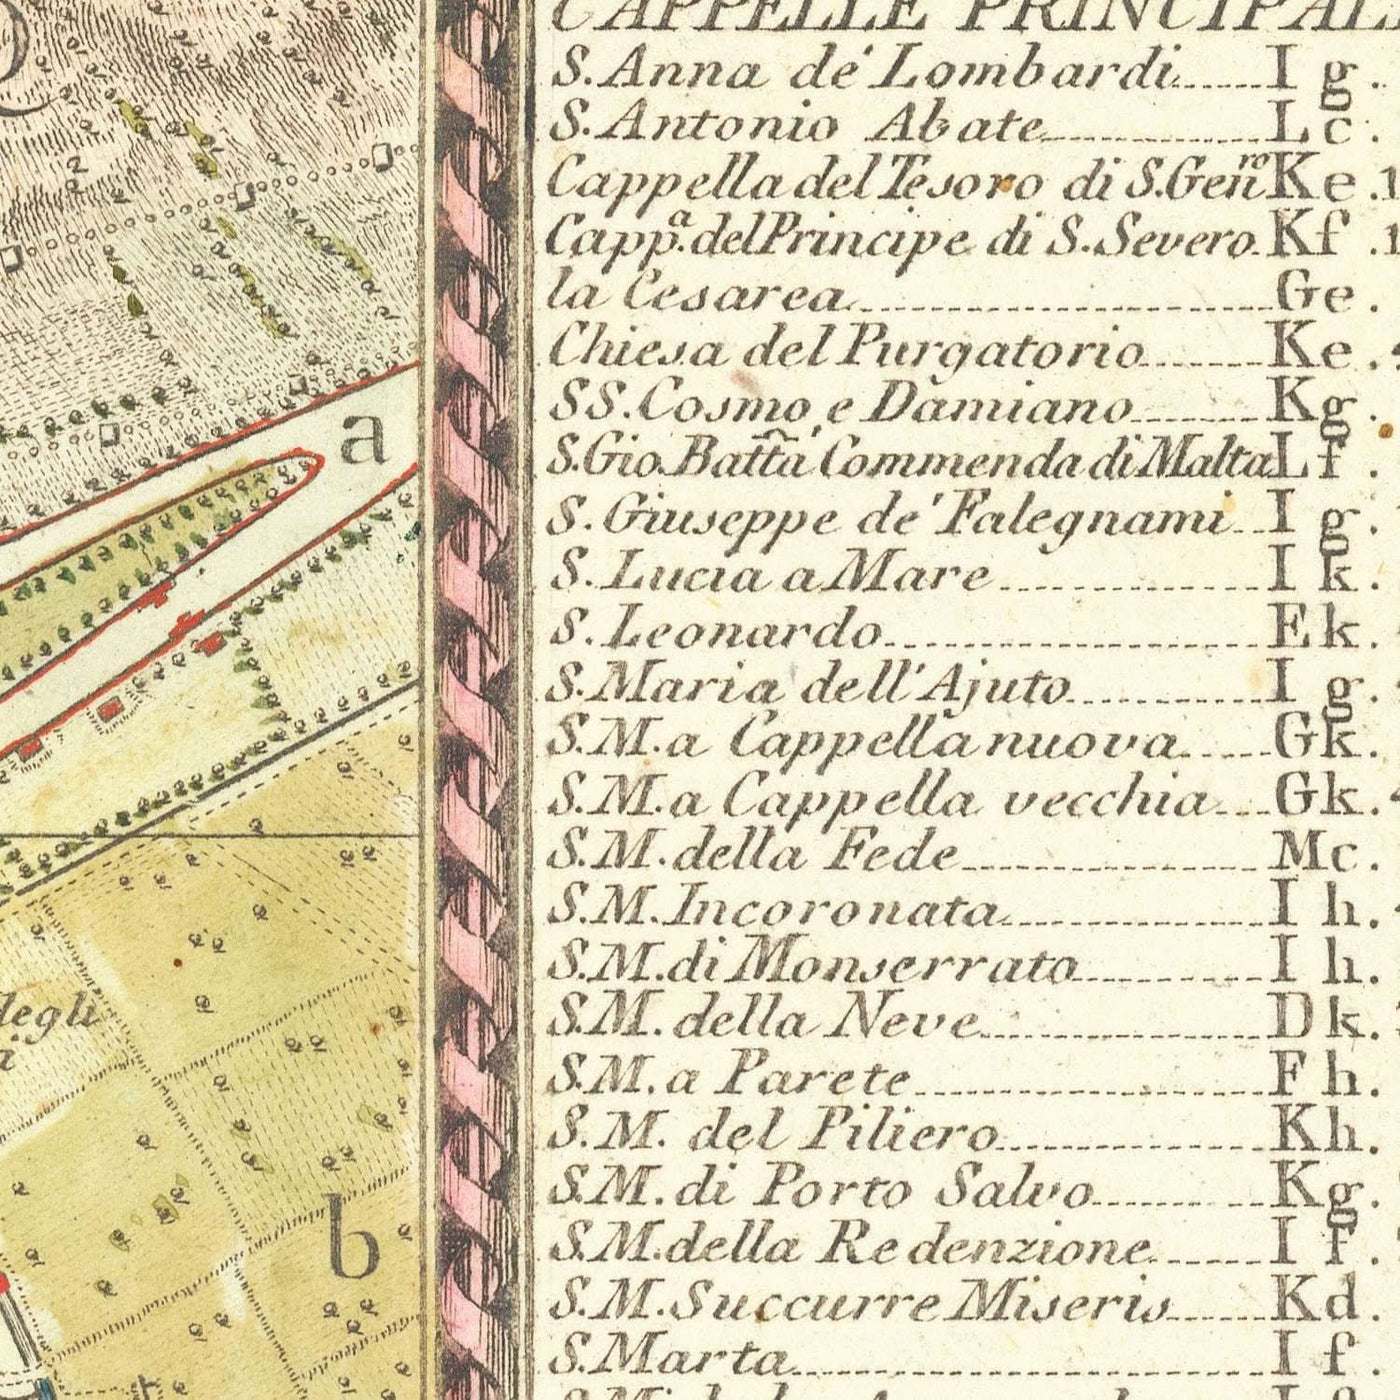 CAPPELLE PRINCIPAL
S. Anna de' Lombardi......I g.
S. Antonio Abate......L c.
Cappella del Tesoro di S. Genro K e. 1
Capp.a del Principe di S. Severo. K f. 1
la Cesarea......G e.
Chiesa del Purgatorio......K e.
SS. Cosmo, e Damiano......K g.
S. Gio. Batta Commenda di Malta L f.
S. Giuseppe de' Falegnami...I g.
S. Lucia a Mare......I k.
S. Leonardo......E k.
S. Maria dell' Ajuto......I g.
S. M. a Cappella nuova......G k.
S. M. a Cappella vecchia...G k.
S. M. della Fede......M c.
S. M. Incoronata......I h.
S. M. di Monserrato......I h.
S. M. della Neve......D k.
S. M. a Parete......F h.
S. M. del Piliero......K h.
S. M. di Porto Salvo......K g.
S. M. della Redenzione......I f.
S. M. Succurre Miseris......K d.
S. Marta......I f.
a
degli
b